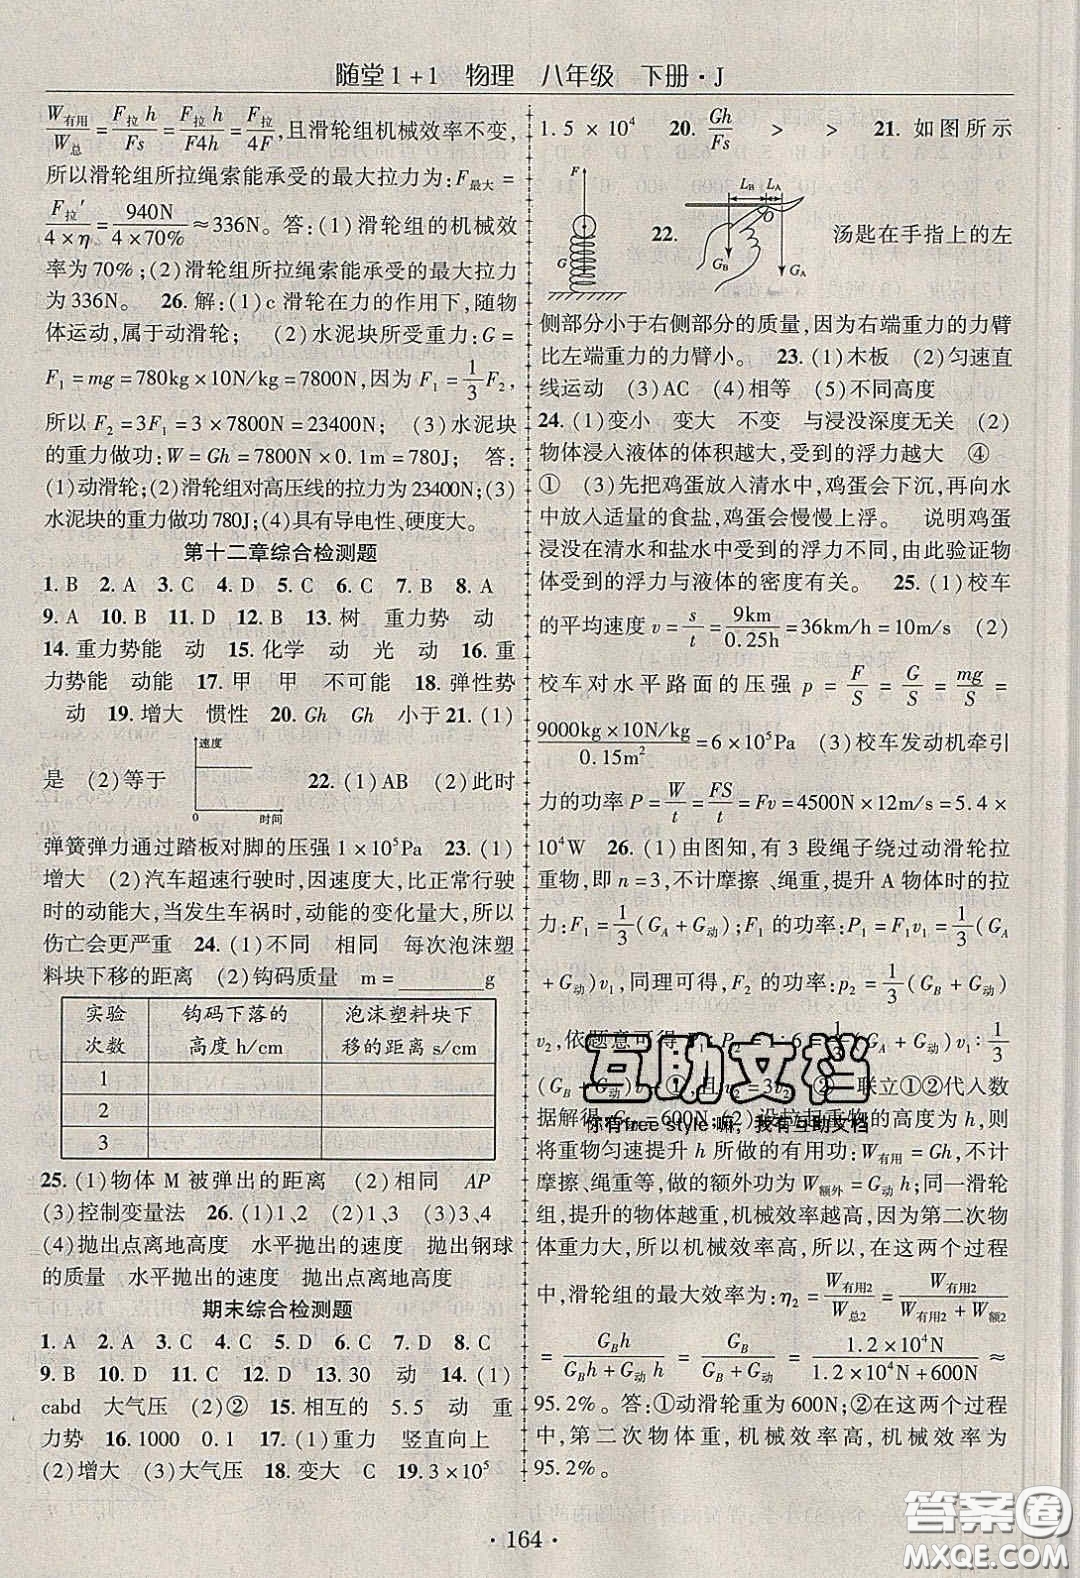 随堂1+1 物理 八年级 下册·J
W有用/W总=F拉 h/Fs=F拉 h/F4h=F拉/4F,且滑轮组机械效率不变,
所以滑轮组所拉绳索能承受的最大拉力为:F最大=
F拉′/4×η=940N/4×70%≈336N。答:(1)滑轮组的机械效
率为70%;(2)滑轮组所拉绳索能承受的最大拉力
为336N。 26.解:(1)c滑轮在力的作用下,随物
体运动,属于动滑轮; (2)水泥块所受重力:G=
F₁=mg=780kg×10N/kg=7800N,因为F₁=1/3F₂,
所以F₂=3F₁=3×7800N=23400N; (3)水泥块
的重力做功:W=Gh=7800N×0.1m=780J; 答:
(1)动滑轮;(2)滑轮组对高压线的拉力为23400N;(3)
水泥块的重力做功780J;(4)具有导电性、硬度大。
第十二章综合检测题
1.B 2.A 3.C 4.D 5.C 6.C 7.B 8.A
9.A 10.B 11.D 12.B 13.树 重力势 动
14.重力势能 动 15.化学 动 光 动 16.重
力势能 动能 17.甲 甲 不可能 18.弹性势
动 19.增大 惯性 20.Gh Gh 小于 21.(1)
速度
是 (2)等于 22.(1)AB (2)此时
0 时间
弹簧弹力通过踏板对脚的压强1×10⁵Pa 23.(1)
增大 (2)汽车超速行驶时,因速度大,比正常行驶
时的动能大,当发生车祸时,动能的变化量大,所以
伤亡会更严重 24.(1)不同 相同 每次泡沫塑
料块下移的距离 (2)钩码质量 m=________g
实验次数 钩码下落的高度h/cm 泡沫塑料块下移的距离s/cm
1
2
3
25.(1)物体M被弹出的距离 (2)相同 AP
(3)控制变量法 26.(1)1、2 (2)1、3 (3)3、4
(4)抛出点离地高度 水平抛出的速度 抛出钢球
的质量 水平抛出的速度 抛出点离地高度
期末综合检测题
1.A 2.A 3.C 4.C 5.D 6.D 7.D 8.C
9.B 10.D 11.D 12.D 13.30 动 14.(1)
cabd 大气压 (2)② 15.相互的 5.5 动 重
力势 16.1000 0.1 17.(1)重力 竖直向上
(2)增大 (3)大气压 18.变大 C 19.3×10⁵
1.5×10⁴ 20.Gh/Fs > > 21.如图所示
F
G
22.
L_B L_A
O
G_B G_A
汤匙在手指上的左
侧部分小于右侧部分的质量,因为右端重力的力臂
比左端重力的力臂小。 23.(1)木板 (2)匀速直
线运动 (3)AC (4)相等 (5)不同高度
24.(1)变小 变大 不变 与浸没深度无关 (2)
物体浸入液体的体积越大,受到的浮力越大 ④
① (3)先把鸡蛋放入清水中,鸡蛋会下沉,再向水
中放入适量的食盐,鸡蛋会慢慢上浮。 说明鸡蛋
浸没在清水和盐水中受到的浮力不同,由此验证物
体受到的浮力与液体的密度有关。 25.(1)校车
的平均速度v=s/t=9km/0.25h=36km/h=10m/s (2)
校车对水平路面的压强p=F/S=G/S=mg/S=
9000kg×10N/kg/0.15m²=6×10⁵Pa (3)校车发动机牵引
力的功率P=W/t=FS/t=Fv=4500N×12m/s=5.4×
10⁴W 26.(1)由图知,有3段绳子绕过动滑轮拉
重物,即n=3,不计摩擦、绳重,提升A物体时的拉
力:F₁=1/3(G_A+G动);F₁的功率:P₁=F₁v₁=1/3(G_A
+G动)v₁,同理可得,F₂的功率:p₂=1/3(G_B+G动)
v₂,依题意可得:P₁:P₂=1/3(G_A+G动)v₁:1/3
(G_B+G动)v₂ ①,且v₁=3v₂ ② 联立①②代入数
据解得:G动=600N;(2)设拉起重物的高度为h,则
将重物匀速提升h所做的有用功:W有用=Gh,不计
摩擦、绳重等,做的额外功为W额外=G动h;同一滑轮
组,提升的物体越重,机械效率越高,因为第二次物
体重力大,所以机械效率高,在这两个过程
中,滑轮组的最大效率为:η₂=W有用2/W总2=W有用2/W有用2+W额2
=G_B h/G_B h+G动 h=G_B/G_B+G动=1.2×10⁴N/1.2×10⁴N+600N≈
95.2%。答:①动滑轮重为600N;②在这两个过程
中,第二次物体重,机械效率高,机械效率为
95.2%。
互助文档
你有free style嘛,我有互助文档
·164·
答案圈
MXQE.COM